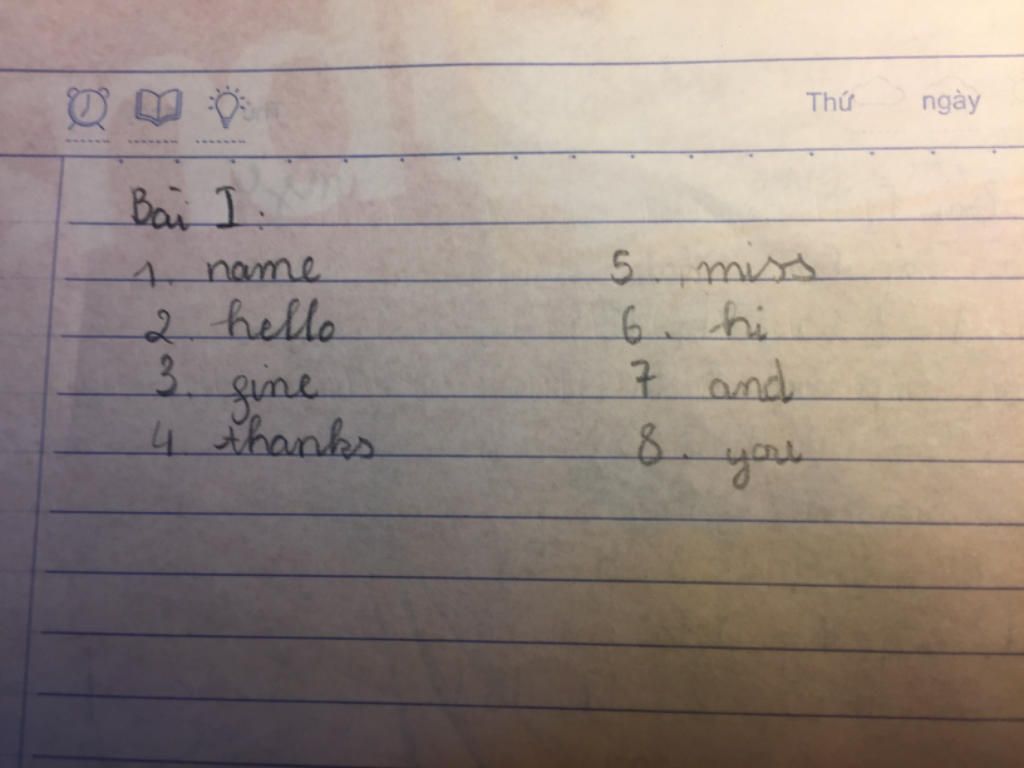 Thứ ngày
Bài I:
1. name
2. hello
3. gine
4. thanks
5. miss
6. hi
7 and
8. you